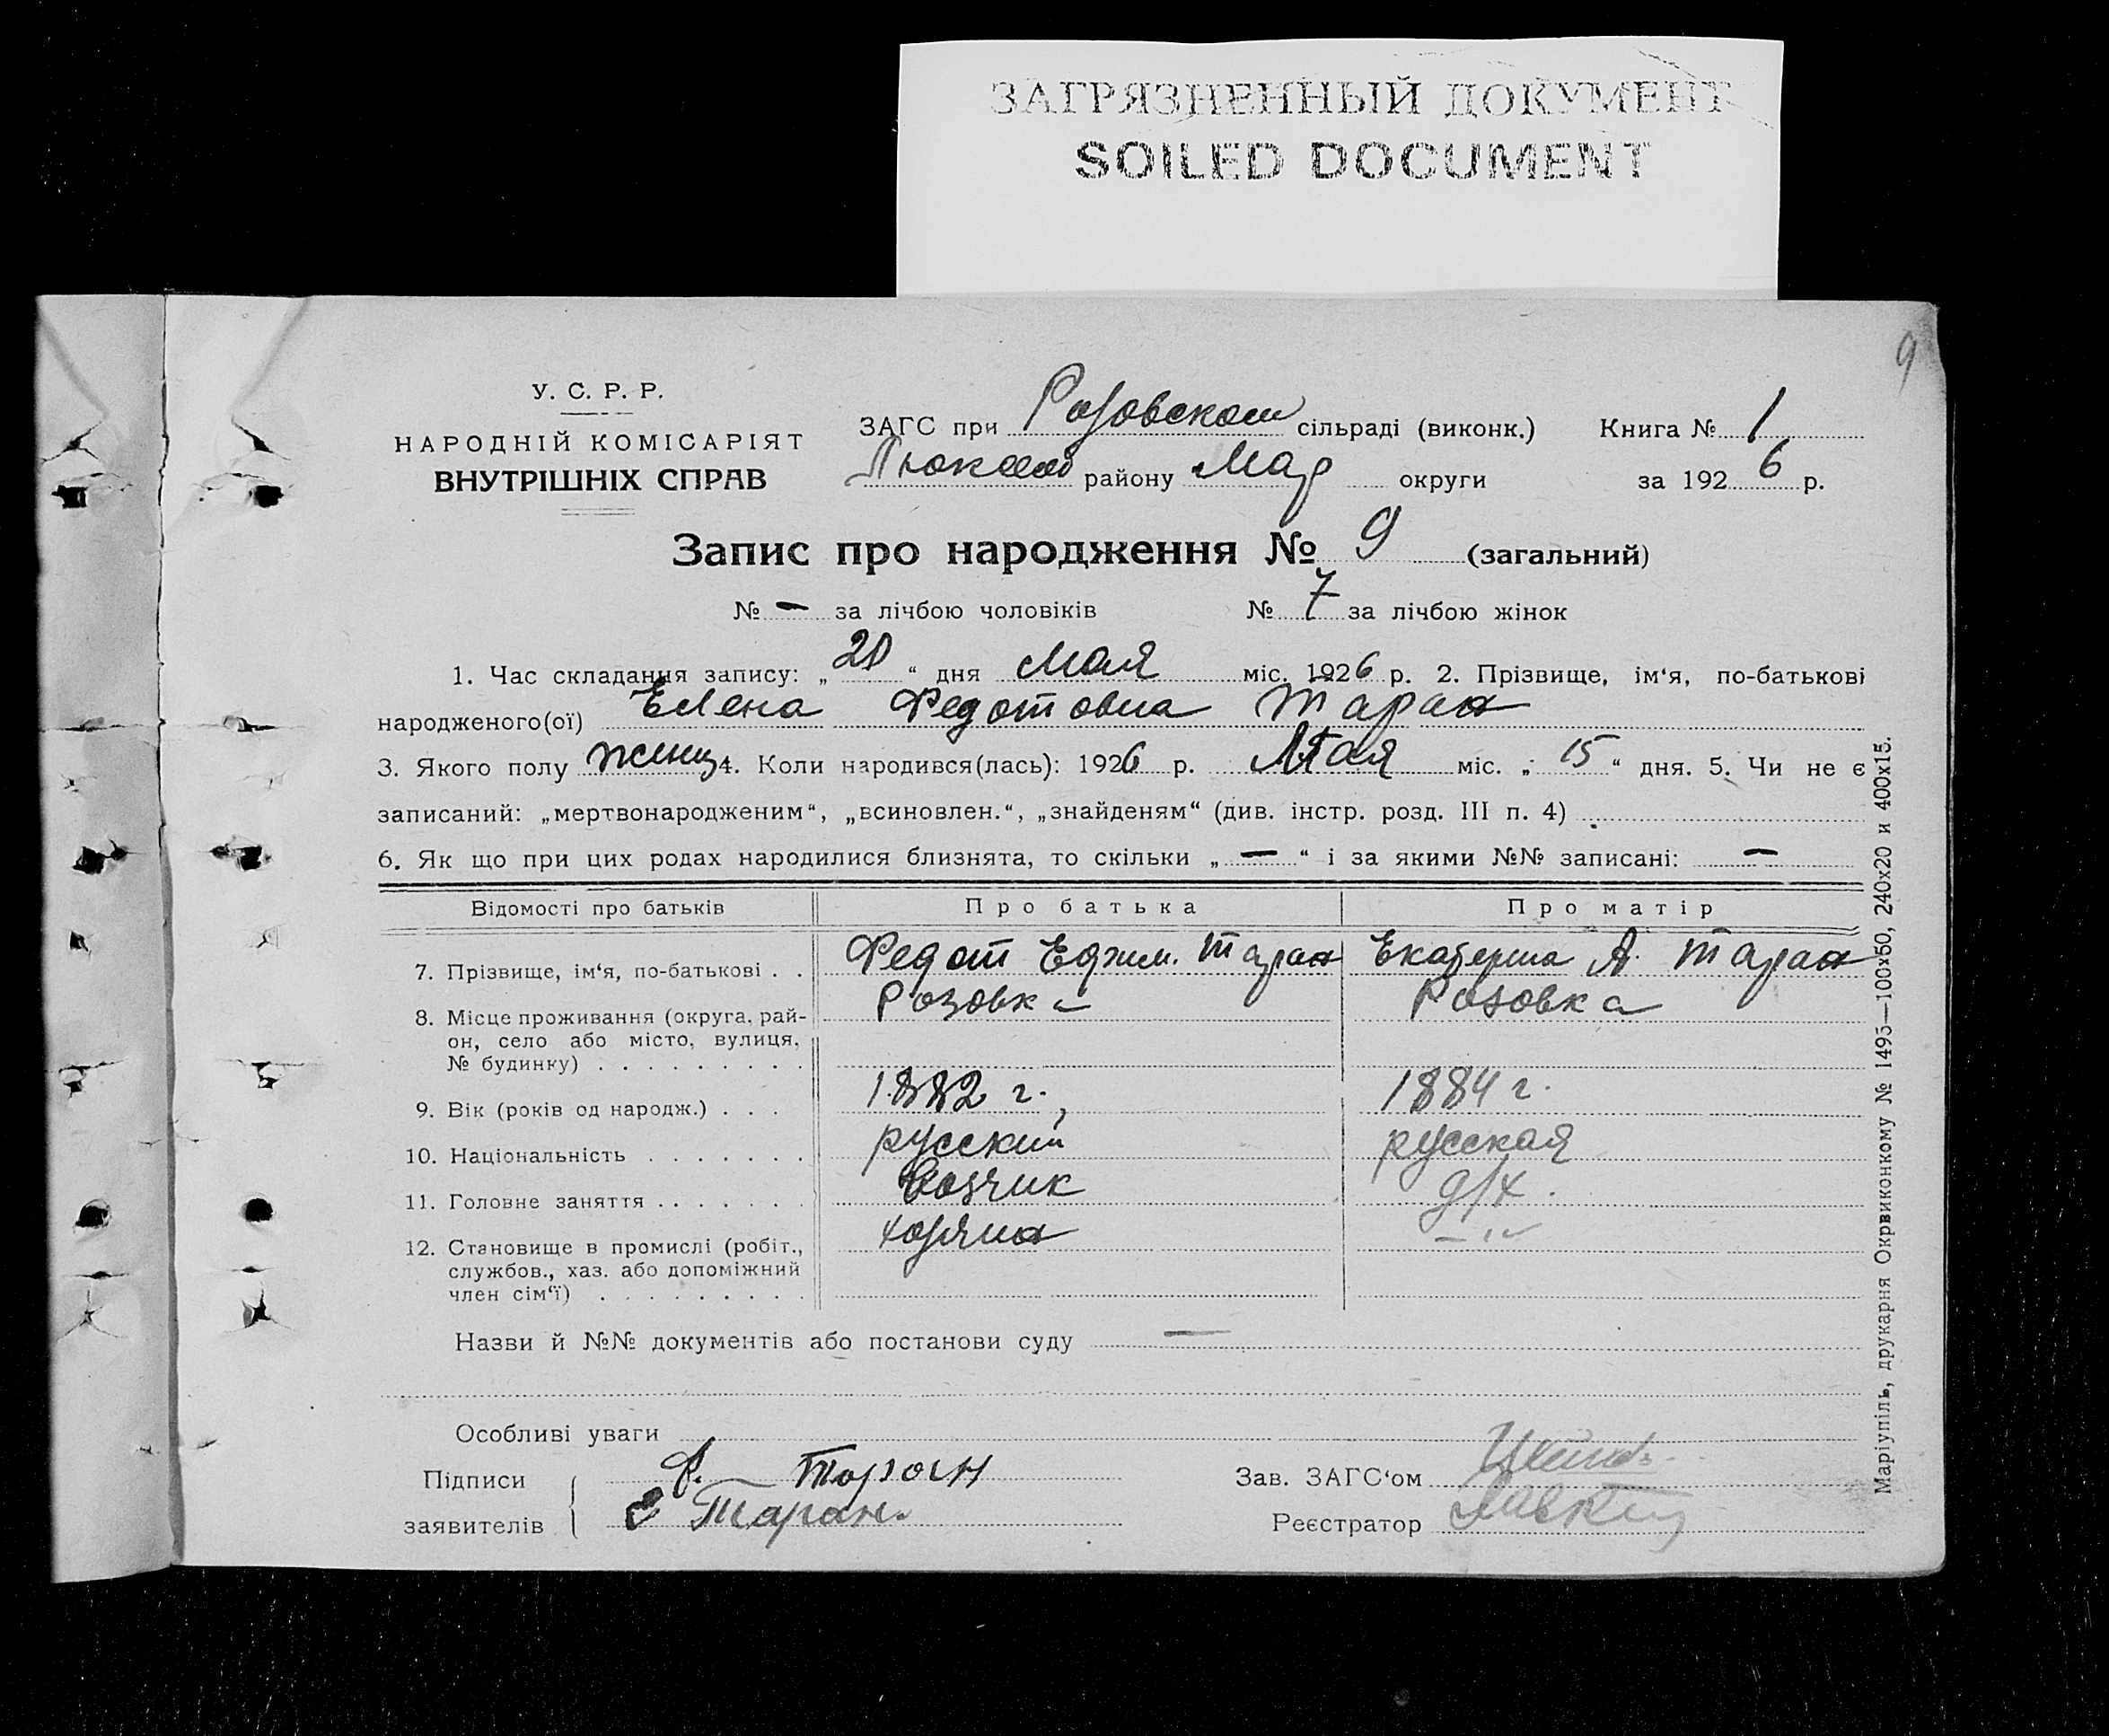 ЗАГРЯЗНЕННЫЙ ДОКУМЕНТ
SOILED DOCUMENT
9
У. С. Р. Р.
НАРОДНІЙ КОМІСАРІЯТ
ВНУТРІШНІХ СПРАВ
ЗАГС при Розовском сільраді (виконк.) Книга № 1
району Мар округи за 1926 р.
Запис про народження № 9 (загальний)
№ — за лічбою чоловіків № 7 за лічбою жінок
1. Час складання запису: „20“ дня Мая міс. 1926 р. 2. Прізвище, ім‘я, по-батькові
народженого(ої) Елена Федотовна Таран
3. Якого полу женщ 4. Коли народився(лась): 1926 р. Мая міс. „15“ дня. 5. Чи не є
записаний: „мертвонародженим“, „всиновлен.“, „знайденям“ (див. інстр. розд. III п. 4)
6. Як що при цих родах народилися близнята, то скільки „—“ і за якими №№ записані: —
Відомості про батьків Про батька Про матір
7. Прізвище, ім‘я, по-батькові . . Федот Ефим. Таран Екатерина А. Таран
8. Місце проживання (округа, рай- Розовка Розовка
он, село або місто, вулиця,
№ будинку) . . . . . . . . .
9. Вік (років од народж.) . . . 1882 г. 1884 г.
10. Національність . . . . . . . русский русская
11. Головне заняття . . . . . . Возчик д/х.
12. Становище в промислі (робіт., хозяин — „ —
службов., хаз. або допоміжний
член сім‘ї) . . . . . . . . .
Назви й №№ документів або постанови суду —
Особливі уваги
Підписи Ф. Таран Зав. ЗАГС‘ом
заявителів Е Таран. Реєстратор
Маріупіль, друкарня Окрвиконкому № 1495—100х50, 240х20 и 400х15.